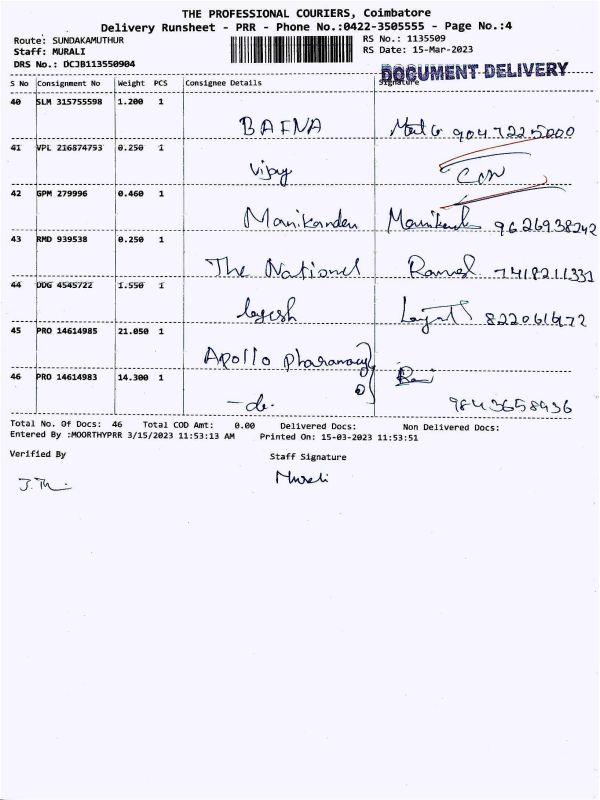 THE PROFESSIONAL COURIERS, Coimbatore
Delivery Runsheet - PRR - Phone No.:0422-3505555 - Page No.:4
Route: SUNDAKAMUTHUR RS No.: 1135509
Staff: MURALI RS Date: 15-Mar-2023
DRS No.: DCJB113550904
DOCUMENT DELIVERY
S No Consignment No Weight PCS Consignee Details Signature
40 SLM 315755598 1.200 1
BAFNA 9047225000
41 VPL 216874793 0.250 1
Vijay
42 GPM 279996 0.460 1
Manikanden 9626938242
43 RMD 939538 0.250 1
The National 7418211331
44 DDG 4545722 1.550 1
8220616172
45 PRO 14614985 21.050 1
Apollo pharamacy
46 PRO 14614983 14.300 1
- do. 9843658936
Total No. Of Docs: 46 Total COD Amt: 0.00 Delivered Docs: Non Delivered Docs:
Entered By :MOORTHYPRR 3/15/2023 11:53:13 AM Printed On: 15-03-2023 11:53:51
Verified By Staff Signature
Murali